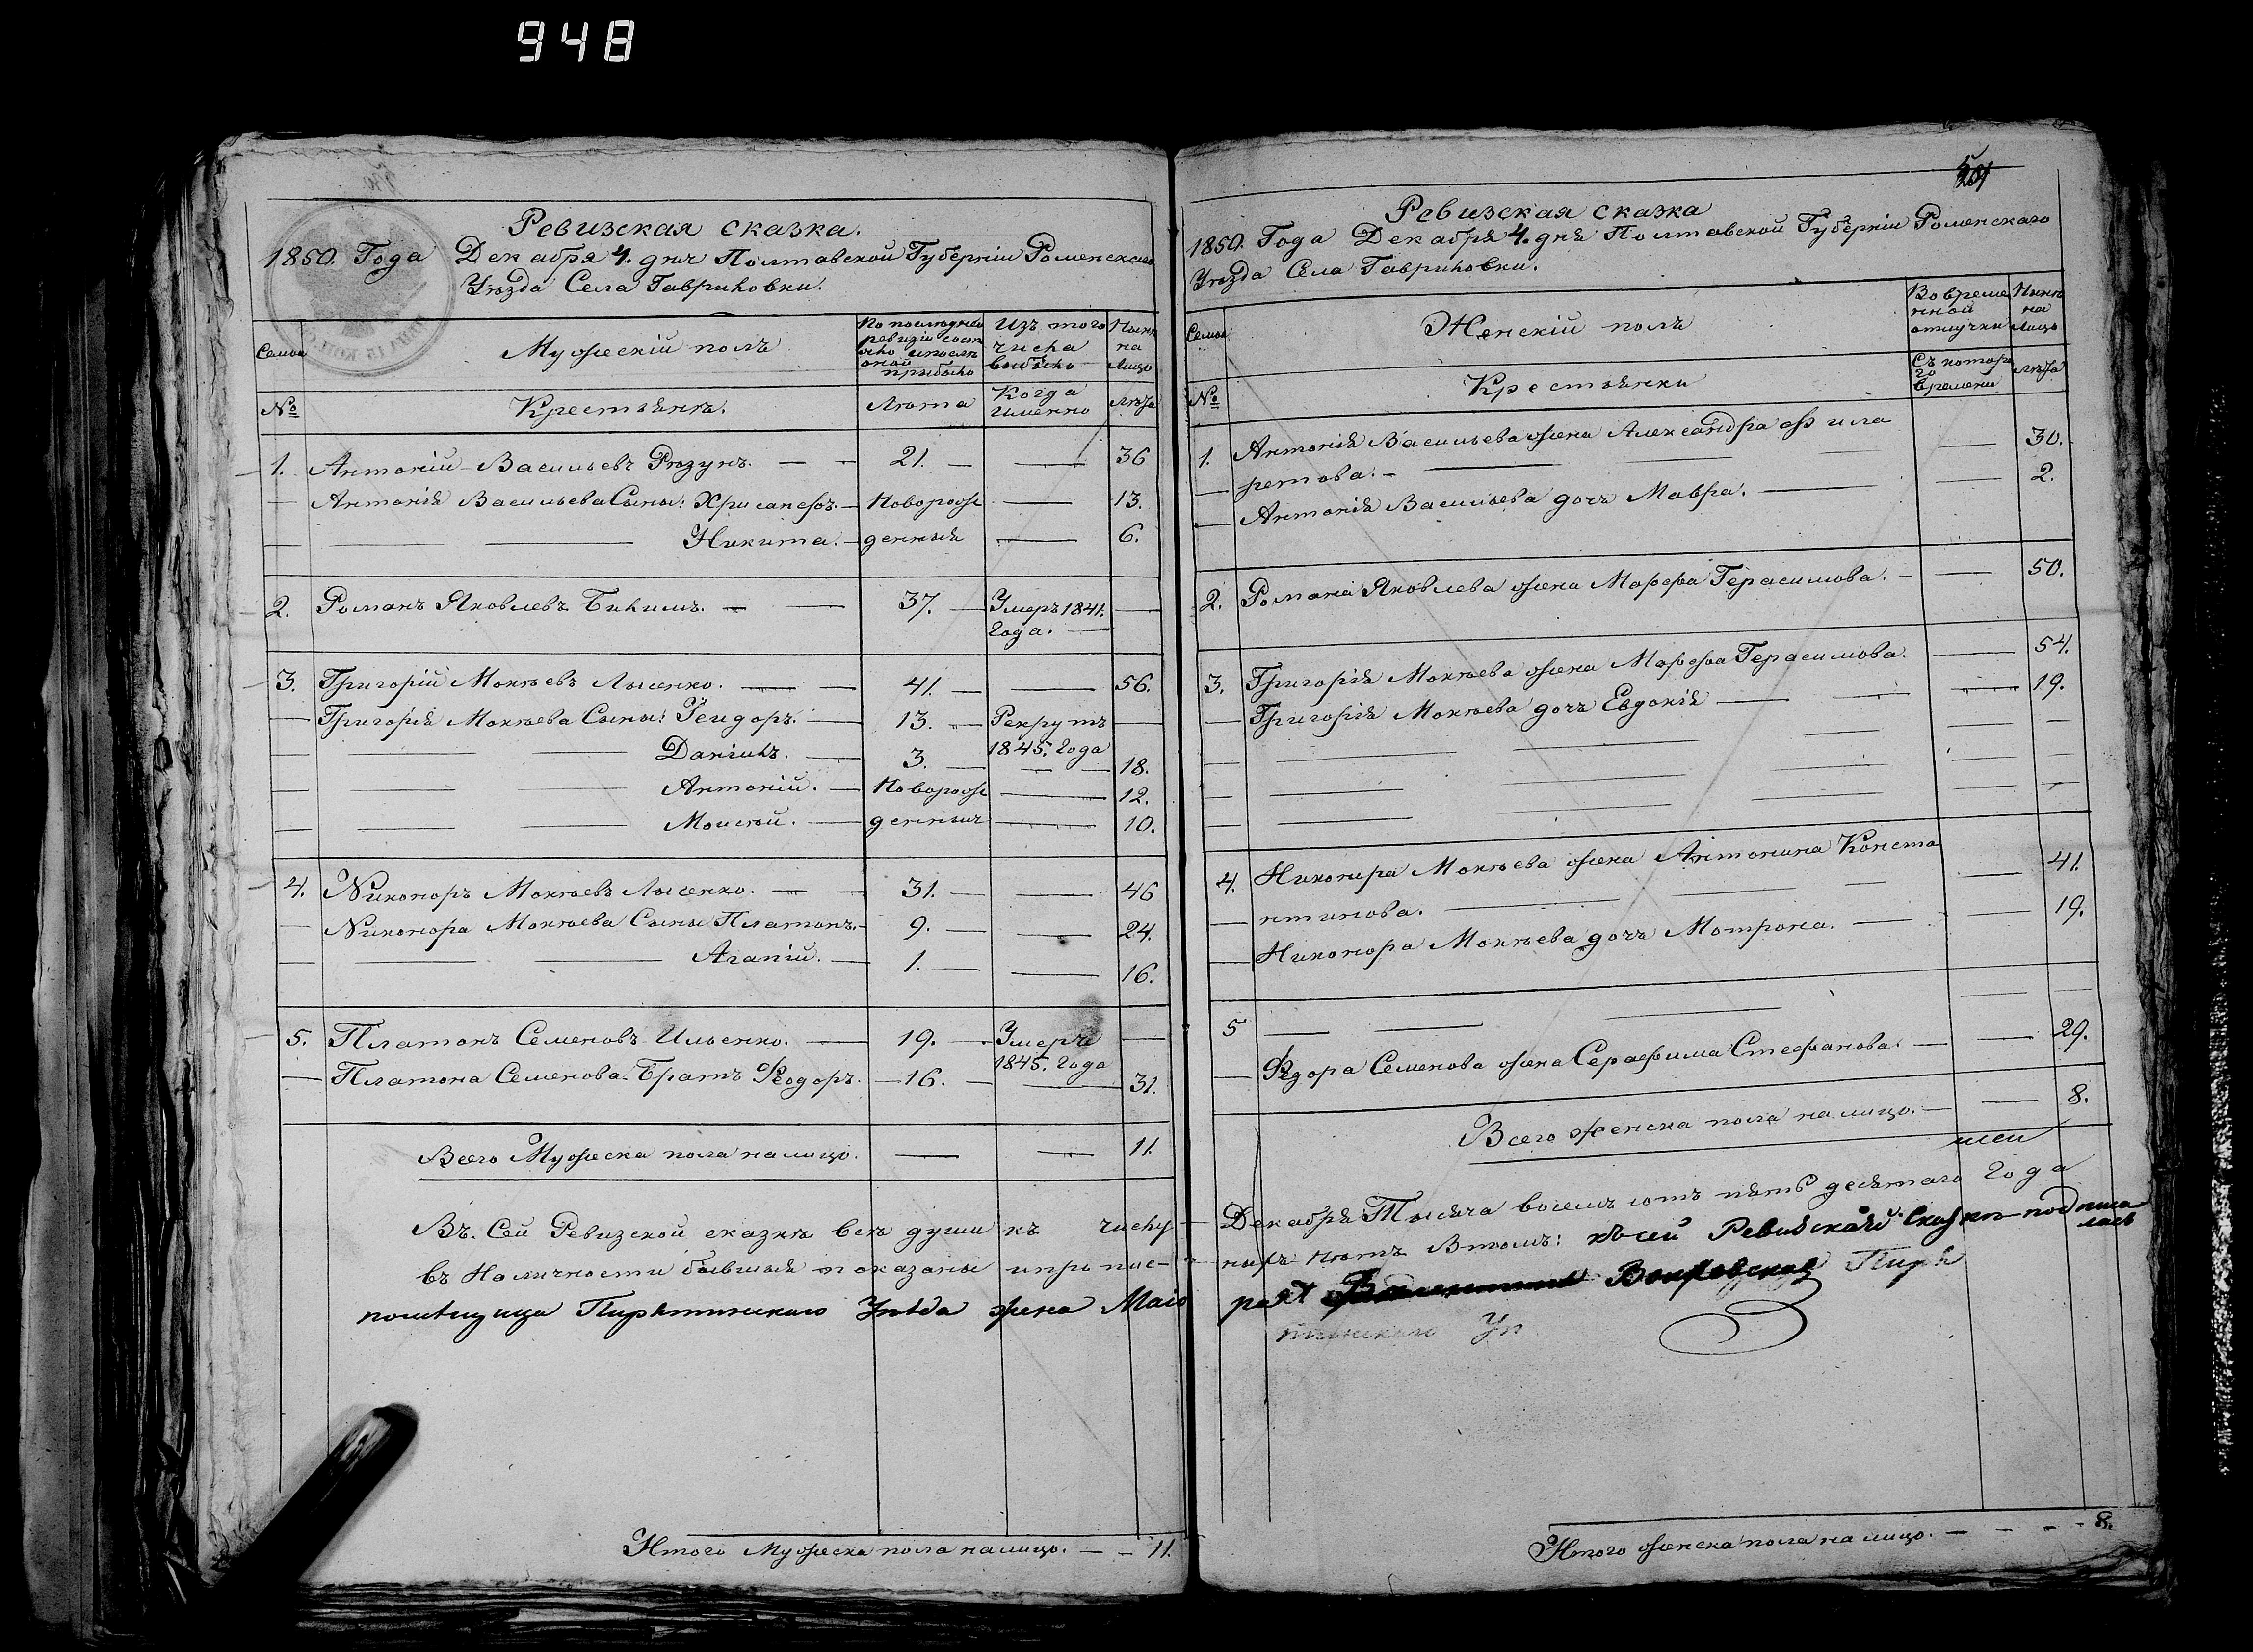 948
Ревизская сказка.
1850. Года Декабря 4. дня Полтавской Губерніи Роменскаго
Уѣзда Села Гавриловки.
Семьи
Мужескій полъ
По последней
ревизіи состо
яло и послѣ
оной
прибыло
Изъ того
числа
выбыло
Нынѣ
на
лицо
№
Крестьянъ.
Лѣта
Когда
именно
Лѣта
1. Антоній Васильевъ Рѣзунъ. — — 21. — — 36
— Антонія Васильева Сыны: Хрисанфъ. — Новорож — 13.
— — — Никита. — денныя — 6.
2. Романъ Яковлевъ — — 37. — Умеръ 1841. —
Года. —
3. Григорій Мокѣевъ Лысенко. — — 41. — — 56.
— Григорія Мокѣева Сыны: Феидоръ. — 13. — Рекрутъ —
1845. Года
— — — Даніилъ. — 3. — — — 18.
— — — Антоній. — Новорож — 12.
— — — Моисей. — денныя — 10.
4. Никоноръ Мокѣевъ Лысенко. — — 31. — — 46
— Никонора Мокѣева Сыны Платонъ. — 9. — — 24.
— — — Агапій. — 1. — — 16.
5. Платонъ Семеновъ Ильенко. — 19. — Умеръ —
1845. Года
— Платона Семенова Братъ Феодоръ. — 16. — — 31.
Всего Мужеска пола на лицо. — — 11.
Въ Сей Ревизской сказкѣ всѣ души къ числу
въ Наличности бывшыя показаны и пропис-
помѣщица Пирятинскаго Уѣзда жена Маіо
Итого Мужеска пола на лицо. — — 11.
Ревизская сказка
1850. Года Декабря 4. дня Полтавской Губерніи Роменскаго
Уѣзда Села Гавриловки.
Семьи
Женскій полъ
Во време
нной
отлучки
Нынѣ
на
лицо
№
Крестьянки
Съ котора
го
времени
лѣта
1. Антонія Васильева жена Александра Фила — 30.
— ретова. — — — —
— Антонія Васильева дочь Мавра. — — 2.
2. Романа Яковлева жена Марфа Герасимова. — — 50.
3. Григорія Мокѣева жена Марфа Герасимова. — 54.
— Григорія Мокѣева дочь Евдокія — — — 19.
4. Никонора Мокѣева жена Антонина Конста
— нтинова. — — — — 41.
— Никонора Мокѣева дочь Матрона. — — 19.
5 — — —
— Федора Семенова жена Серафима Стефанова. — — 29.
Всего женска пола на лицо. — — 8.
Декабря Тысяча восемъ сотъ пять десятаго Года
ныхъ нѣтъ Втомъ: къ сей Ревизской Сказкѣ подписа
лась
Пиря
тинскаго Уѣ
Итого женска пола на лицо. — — — — 8.